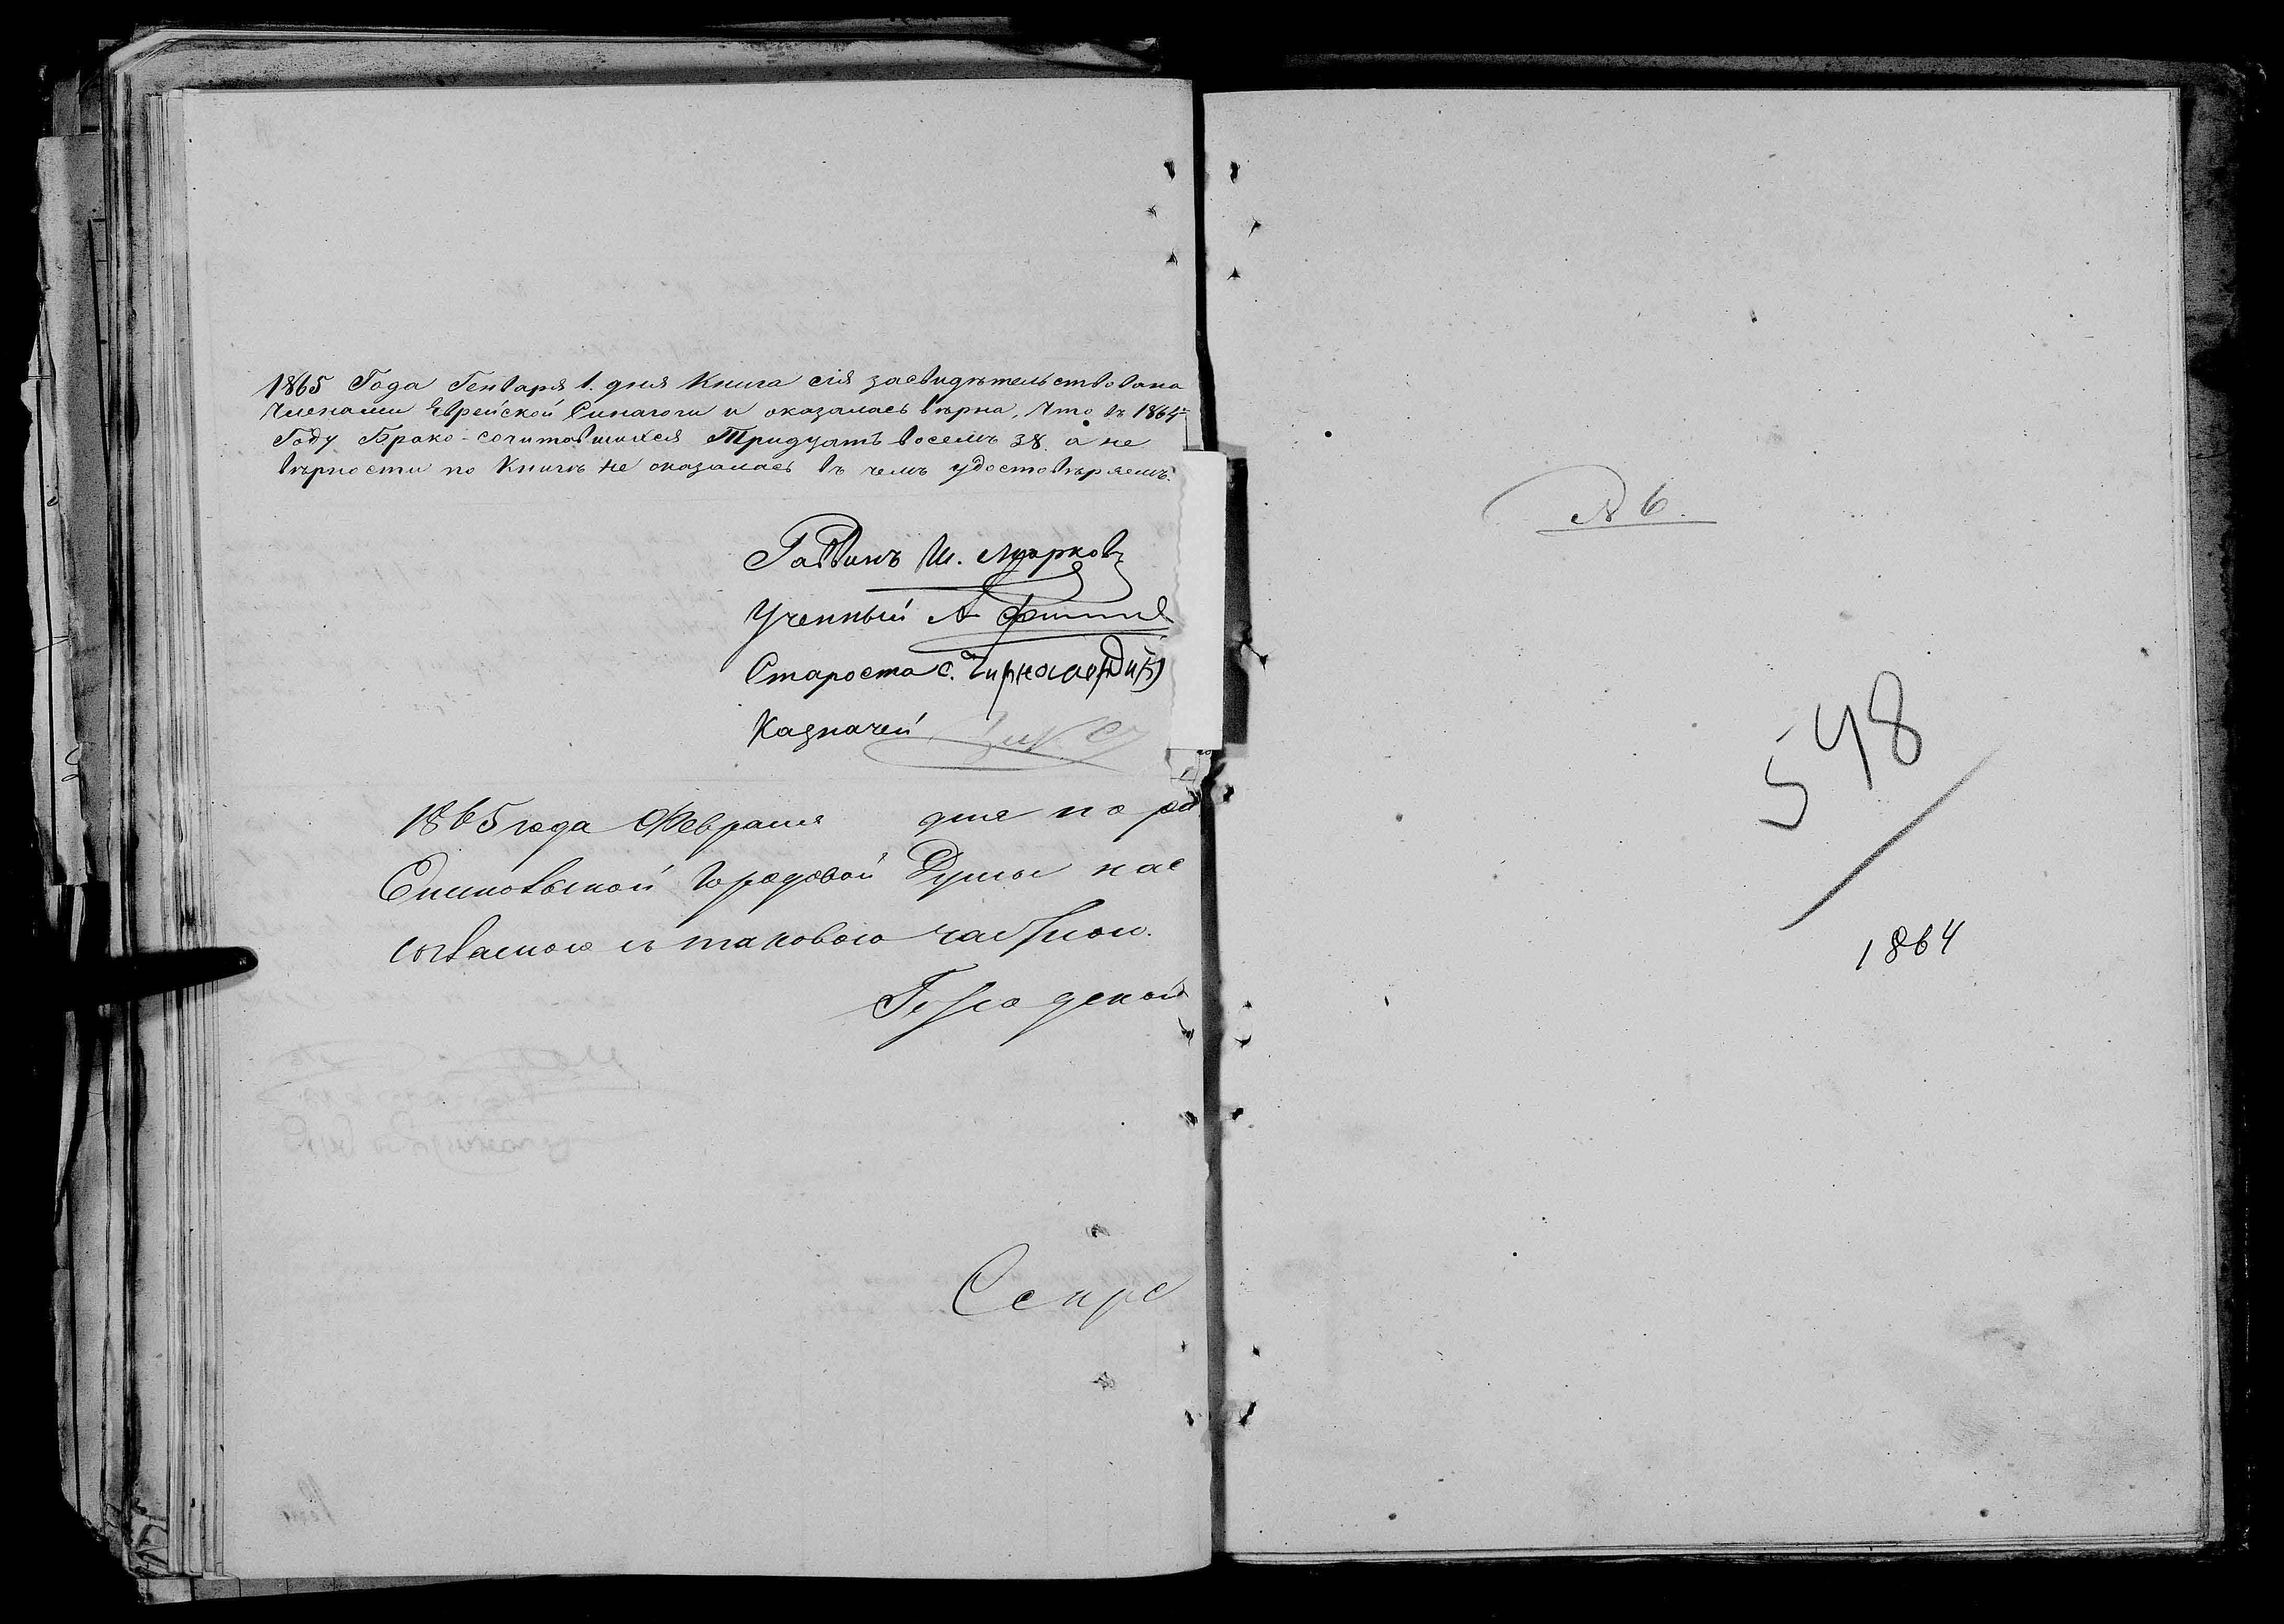 1865 Года Генваря 1. дня Книга сія засвидѣтельствована
Членами Еврейской Синагоги и оказалась вѣрна, что въ 1864
Году Брако-сочитавшихся Тридцать восемь 38. а не
вѣрности по Книгѣ не оказалась въ чемъ удостовѣряемъ.
Раввинъ Ш. Марковъ
Ученный А
Староста С.
Казначей
1865 года Февраля дня по
Городовой Думы нас
съ таковою частною.
Городской
Секре
№ 6.
548
1864